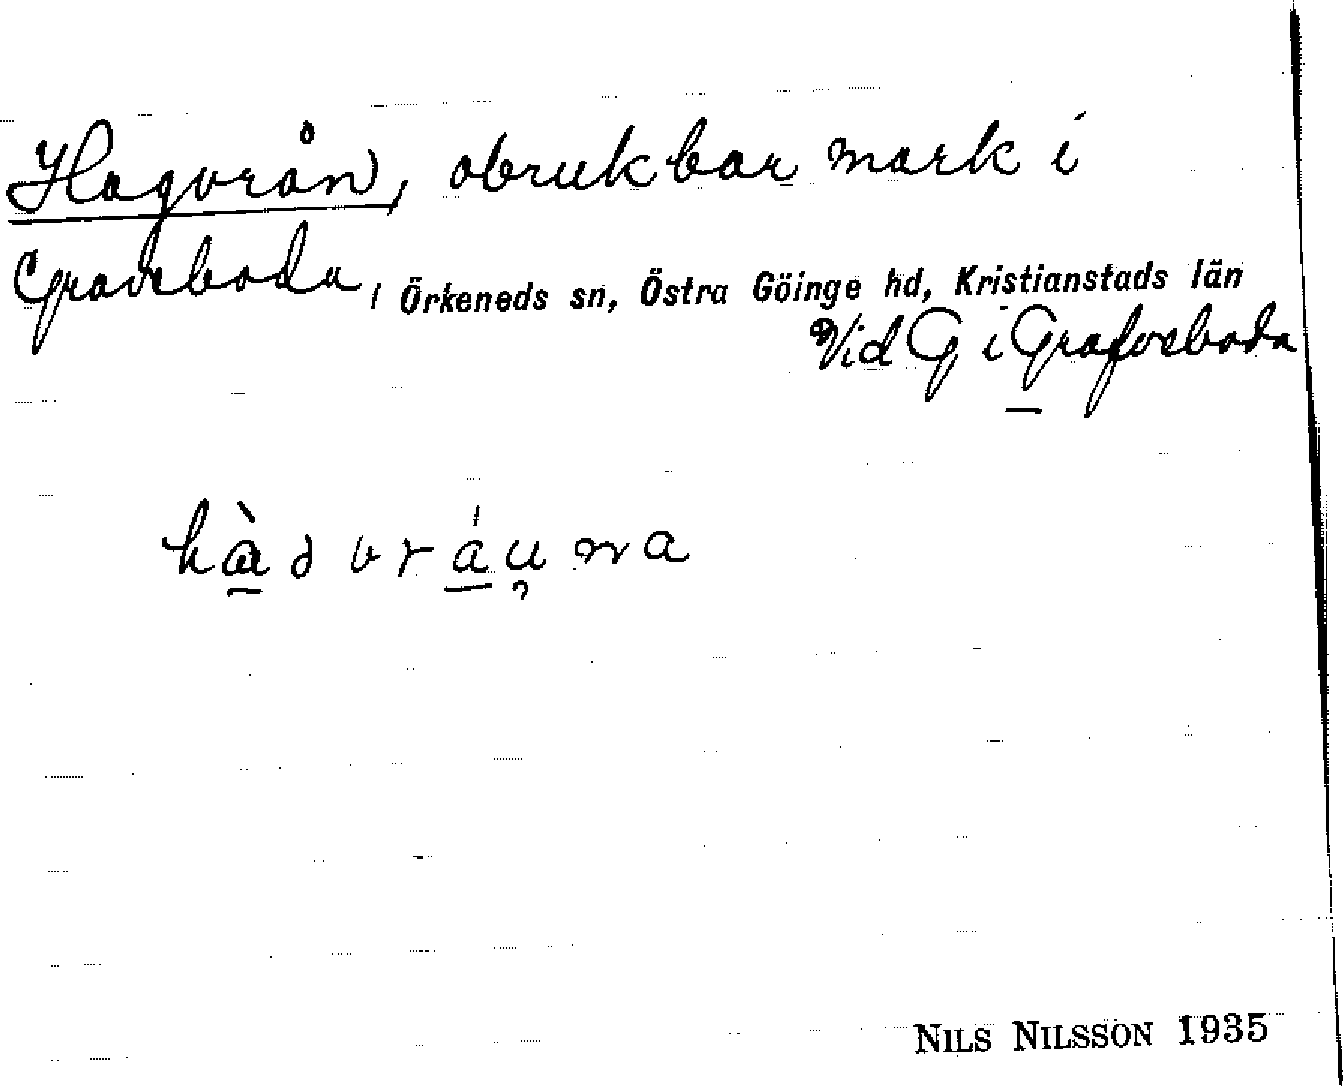 Hagvrån, obrukbar mark i
Graveboda, Örkeneds sn, Östra Göinge hd, Kristianstads län
Vid G i Grafveboda
NILS NILSSON 1935